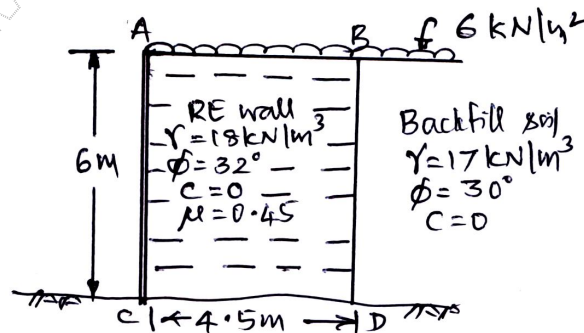 A B f 6 kN/m²
RE wall
γ=18kN/m³
φ=32°
c=0
μ=0.45
6m
Backfill soil
γ=17kN/m³
φ=30°
c=0
C 4.5m D